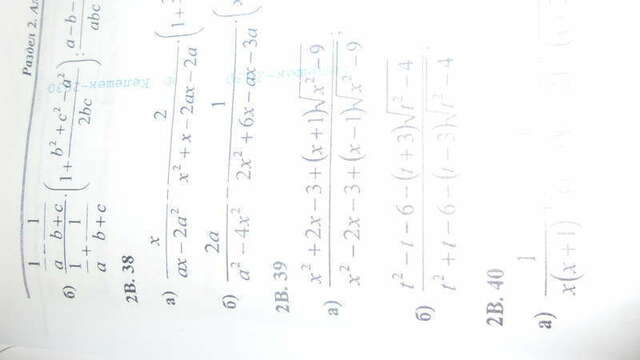 Раздел 2. Ал
б) \frac{\frac{1}{a} - \frac{1}{b+c}}{\frac{1}{a} + \frac{1}{b+c}} : \left(1 + \frac{b^2 + c^2 - a^2}{2bc}\right) : \frac{a - b -}{abc}
2В. 38
а) \frac{x}{ax - 2a^2} - \frac{2}{x^2 + x - 2ax - 2a} \cdot (1 +
б) \frac{2a}{a^2 - 4x^2} - \frac{1}{2x^2 + 6x - ax - 3a} \cdot (
2В. 39
а) \frac{x^2 + 2x - 3 + (x+1)\sqrt{x^2 - 9}}{x^2 - 2x - 3 + (x-1)\sqrt{x^2 - 9}};
б) \frac{t^2 - t - 6 - (t+3)\sqrt{t^2 - 4}}{t^2 + t - 6 - (t-3)\sqrt{t^2 - 4}}.
2В. 40
а) \frac{1}{x(x+1)}